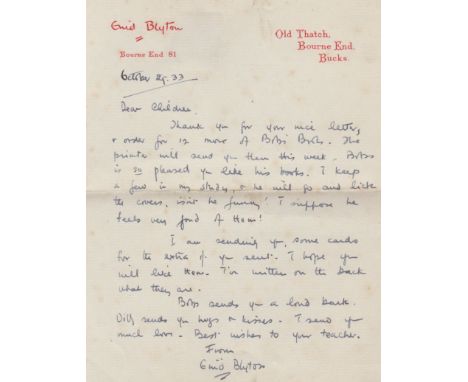 Enid Blyton
Old Thatch,
Bourne End,
Bucks.
Bourne End 81
October 29. 33
Dear Children,
Thank you for your nice letter,
& order for 12 more of Bobs' Books. The
printer will send you them this week. Bobs
is so pleased you like his books. I keep
a few in my study, & he will go and lick
the covers, isn't he funny! I suppose he
feels very fond of them!
I am sending you some cards
for the extra 6d you sent. I hope you
will like them. I've written on the back
what they are.
Bobs sends you a loud bark.
sends you hugs & kisses. I send you
much love. Best wishes to your teacher.
From
Enid Blyton